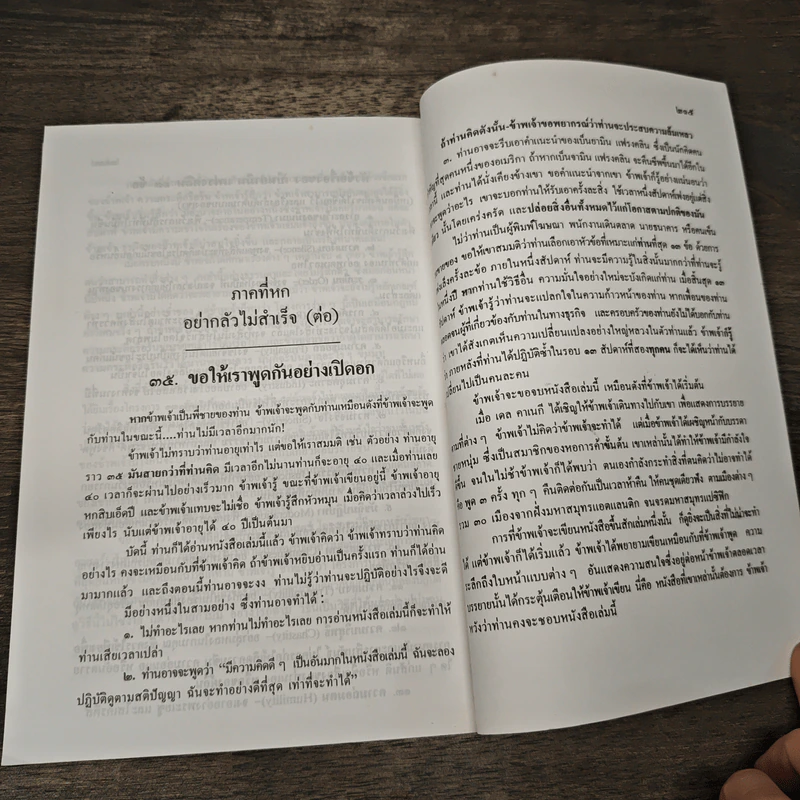 ภาคที่หก
อย่ากลัวไม่สำเร็จ (ต่อ)
๓๕. ขอให้เราพูดกันอย่างเปิดอก
หากข้าพเจ้าเป็นพี่ชายของท่าน ข้าพเจ้าจะพูดกับท่านเหมือนดังที่ข้าพเจ้าจะพูด
กับท่านในขณะนี้....ท่านไม่มีเวลาอีกมากนัก!
ข้าพเจ้าไม่ทราบว่าท่านอายุเท่าไร แต่ขอให้เราสมมติ เช่น ตัวอย่าง ท่านอายุ
ราว ๓๕ มันสายกว่าที่ท่านคิด มีเวลาอีกไม่นานท่านก็จะอายุ ๔๐ และเมื่อท่านเลย
๔๐ เวลาก็จะผ่านไปอย่างเร็วมาก ข้าพเจ้ารู้ ขณะที่ข้าพเจ้าเขียนอยู่นี้ ข้าพเจ้าอายุ
หกสิบเอ็ดปี และข้าพเจ้าแทบจะไม่เชื่อ ข้าพเจ้ารู้สึกหัวหมุน เมื่อคิดว่าเวลาล่วงไปเร็ว
เพียงไร นับแต่ข้าพเจ้าอายุได้ ๔๐ ปีเป็นต้นมา
บัดนี้ ท่านก็ได้อ่านหนังสือเล่มนี้แล้ว ข้าพเจ้าคิดว่า ข้าพเจ้าทราบว่าท่านคิด
อย่างไร คงจะเหมือนกับที่ข้าพเจ้าคิด ถ้าข้าพเจ้าหยิบอ่านเป็นครั้งแรก ท่านก็ได้อ่าน
มามากแล้ว และถึงตอนนี้ท่านอาจจะงง ท่านไม่รู้ว่าท่านจะปฏิบัติอย่างไรจึงจะดี
มีอย่างหนึ่งในสามอย่าง ซึ่งท่านอาจทำได้ :
๑. ไม่ทำอะไรเลย หากท่านไม่ทำอะไรเลย การอ่านหนังสือเล่มนี้ก็จะทำให้
ท่านเสียเวลาเปล่า
๒. ท่านอาจจะพูดว่า "มีความคิดดี ๆ เป็นอันมากในหนังสือเล่มนี้ ฉันจะลอง
ปฏิบัติดูตามสติปัญญา ฉันจะทำอย่างดีที่สุด เท่าที่จะทำได้"
๒๑๕
ถ้าท่านคิดดังนั้น-ข้าพเจ้าขอพยากรณ์ว่าท่านจะประสบความล้มเหลว
๓. ท่านอาจจะรีบเอาคำแนะนำของเบ็นยามิน แฟรงคลิน ซึ่งเป็นนักคิดคน
ที่สุดคนหนึ่งของอเมริกา ถ้าหากเบ็นจามิน แฟรงคลิน จะคืนชีพขึ้นมาได้อีกใน
และท่านได้นั่งเคียงข้างเขา ขอคำแนะนำจากเขา ข้าพเจ้าก็รู้อย่างแน่นอนว่า
จะพูดว่าอะไร เขาจะบอกท่านให้รับเอาครั้งละสิ่ง ใช้เวลาหนึ่งสัปดาห์เพ่งอยู่แต่สิ่ง
นั้นโดยเคร่งครัด และปล่อยสิ่งอื่นทั้งหมดไว้แก่โอกาสตามปกติของมัน
ไม่ว่าท่านเป็นผู้พิมพ์โฆษณา พนักงานเดินตลาด นายธนาคาร หรือคนเข็น
ขายของ ขอให้เขาสมมติว่าท่านเลือกเอาหัวข้อที่เหมาะแก่ท่านที่สุด ๑๓ ข้อ ด้วยการ
ครั้งละข้อ ภายในหนึ่งสัปดาห์ ท่านจะมีความรู้ในสิ่งนั้นมากกว่าที่ท่านจะรู้
หนึ่งปี หากท่านใช้วิธีอื่น ความมั่นใจอย่างใหม่จะบังเกิดแก่ท่าน เมื่อสิ้นสุด ๑๓
ข้าพเจ้ารู้ว่าท่านจะแปลกใจในความก้าวหน้าของท่าน หากเพื่อนของท่าน
ผู้ที่เกี่ยวข้องกับท่านในทางธุรกิจ และครอบครัวของท่านยังไม่ได้บอกกับท่าน
ว่า เขาได้สังเกตเห็นความเปลี่ยนแปลงอย่างใหญ่หลวงในตัวท่านแล้ว ข้าพเจ้าก็รู้
ภายหลังที่ท่านได้ปฏิบัติซ้ำในรอบ ๑๓ สัปดาห์ที่สองทุกคน ก็จะได้เห็นว่าท่านได้
เปลี่ยนไปเป็นคนละคน
ข้าพเจ้าจะขอจบหนังสือเล่มนี้ เหมือนดังที่ข้าพเจ้าได้เริ่มต้น
เมื่อ เดล คาเนกี ได้เชิญให้ข้าพเจ้าเดินทางไปกับเขา เพื่อแสดงการบรรยาย
ต่าง ๆ ข้าพเจ้าไม่คิดว่าข้าพเจ้าจะทำได้ แต่เมื่อข้าพเจ้าเผชิญหน้ากับบรรดา
หนุ่ม ซึ่งเป็นสมาชิกของหอการค้าชั้นต้น เขาเหล่านั้นได้ทำให้ข้าพเจ้ามีกำลังใจ
จนในไม่ช้าข้าพเจ้าก็ได้พบว่า ตนเองกำลังกระทำสิ่งที่ตนคิดว่าไม่อาจทำได้
พูด ๓ ครั้ง ทุก ๆ คืนติดต่อกันเป็นเวลาห้าคืน ให้คนชุดเดียวฟัง ตามเมืองต่าง ๆ
๓๐ เมืองจากฝั่งมหาสมุทรแอตแลนติก จนจรดมหาสมุทรแปซิฟิก
การที่ข้าพเจ้าจะเขียนหนังสือขึ้นสักเล่มหนึ่งนั้น ก็ดูยิ่งจะเป็นสิ่งที่ไม่น่าจะทำ
ได้ แต่ข้าพเจ้าก็ได้เริ่มแล้ว ข้าพเจ้าได้พยายามเขียนเหมือนกับที่ข้าพเจ้าพูด ความ
ระลึกถึงใบหน้าแบบต่าง ๆ อันแสดงความสนใจซึ่งอยู่ต่อหน้าข้าพเจ้าตลอดเวลา
บรรยายนั้นได้กระตุ้นเตือนให้ข้าพเจ้าเขียน นี่คือ หนังสือที่เขาเหล่านั้นต้องการ ข้าพเจ้า
หวังว่าท่านคงจะชอบหนังสือเล่มนี้